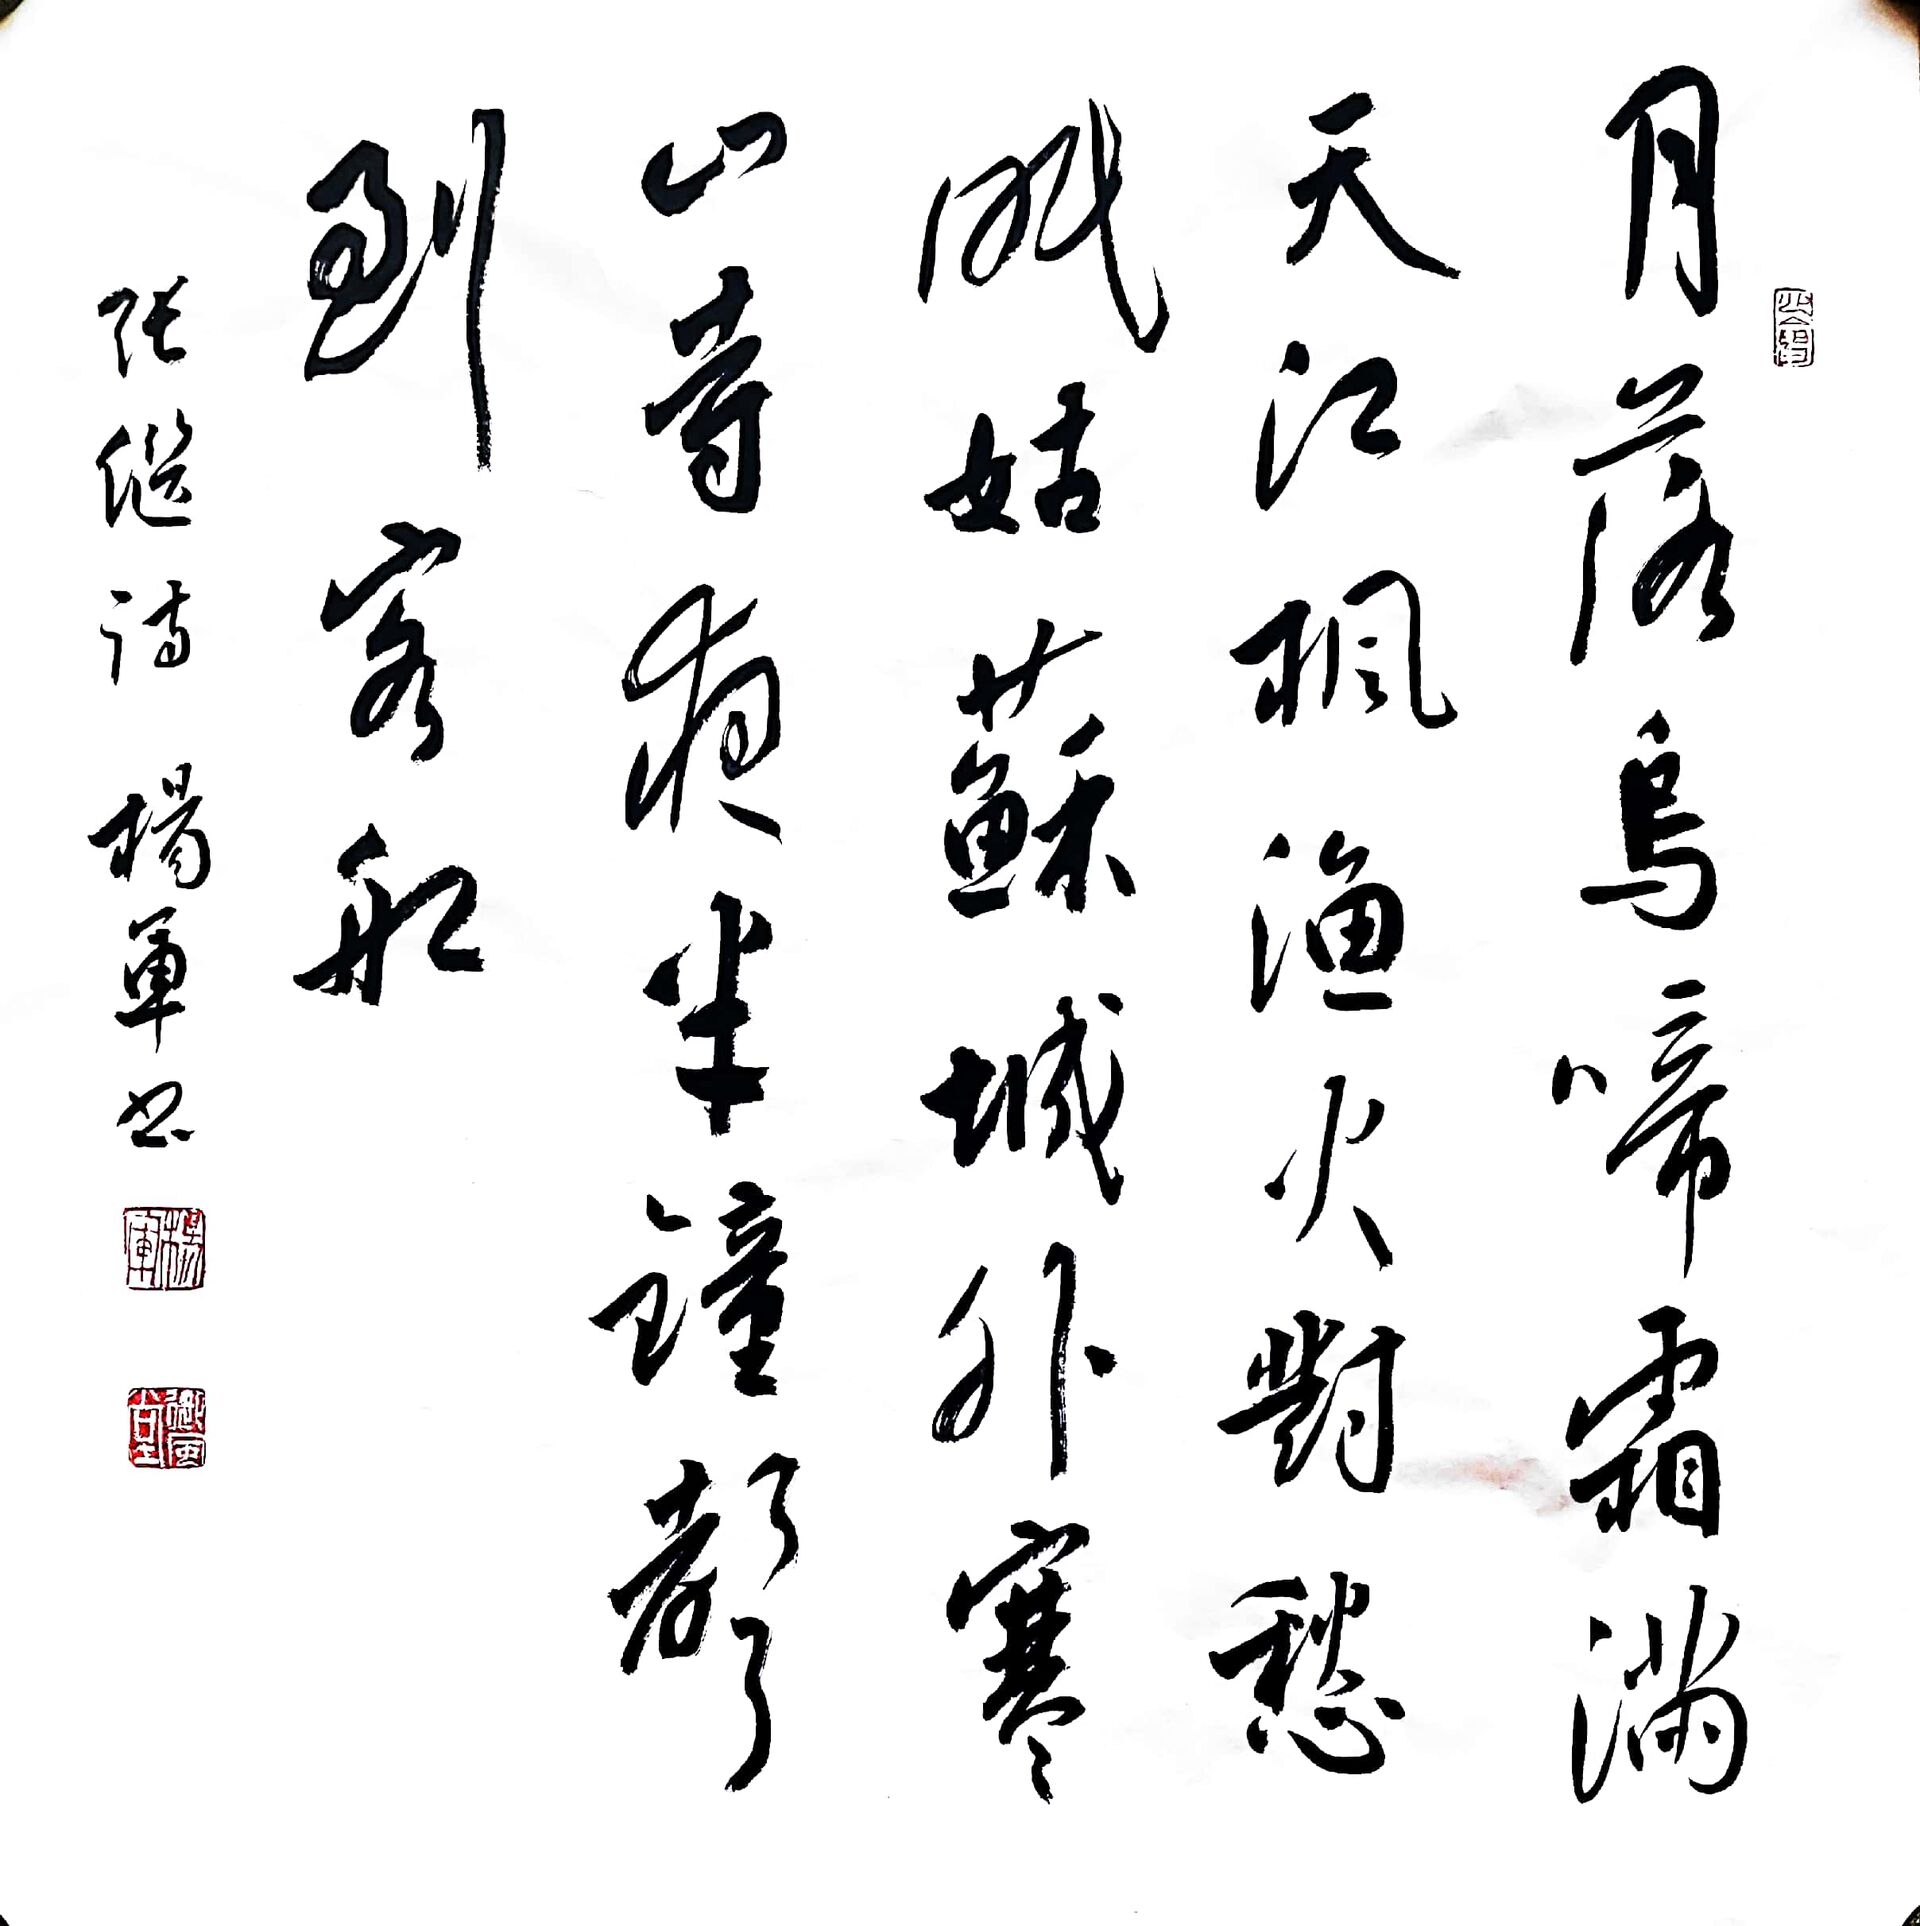 月落烏啼霜滿
天江楓漁火對愁
眠姑蘇城外寒
山寺夜半鐘聲
到客船
張繼詩 楊軍书
楊軍